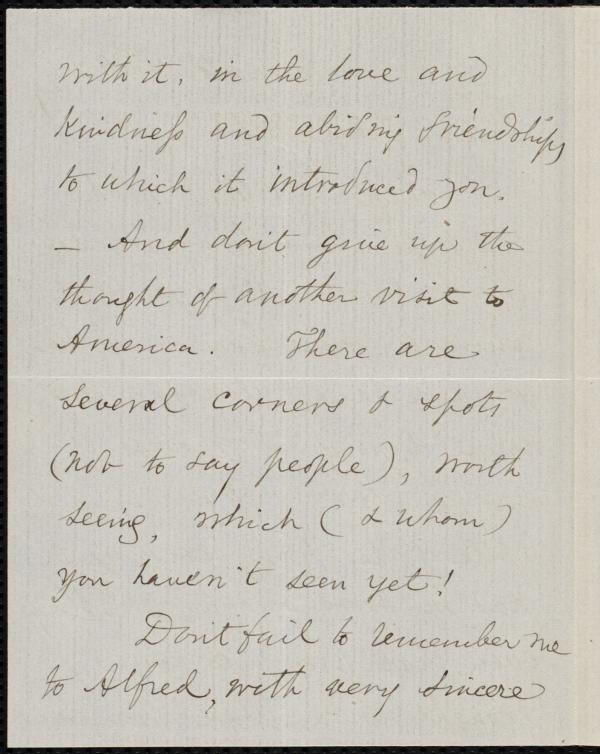 with it, in the love and
kindness and abiding friendships
to which it introduced you.
— And don't give up the
thought of another visit to
America. There are
several corners & spots
(not to say people), worth
seeing, which (& whom)
you haven't seen yet!
Don't fail to remember me
to Alfred, with very sincere